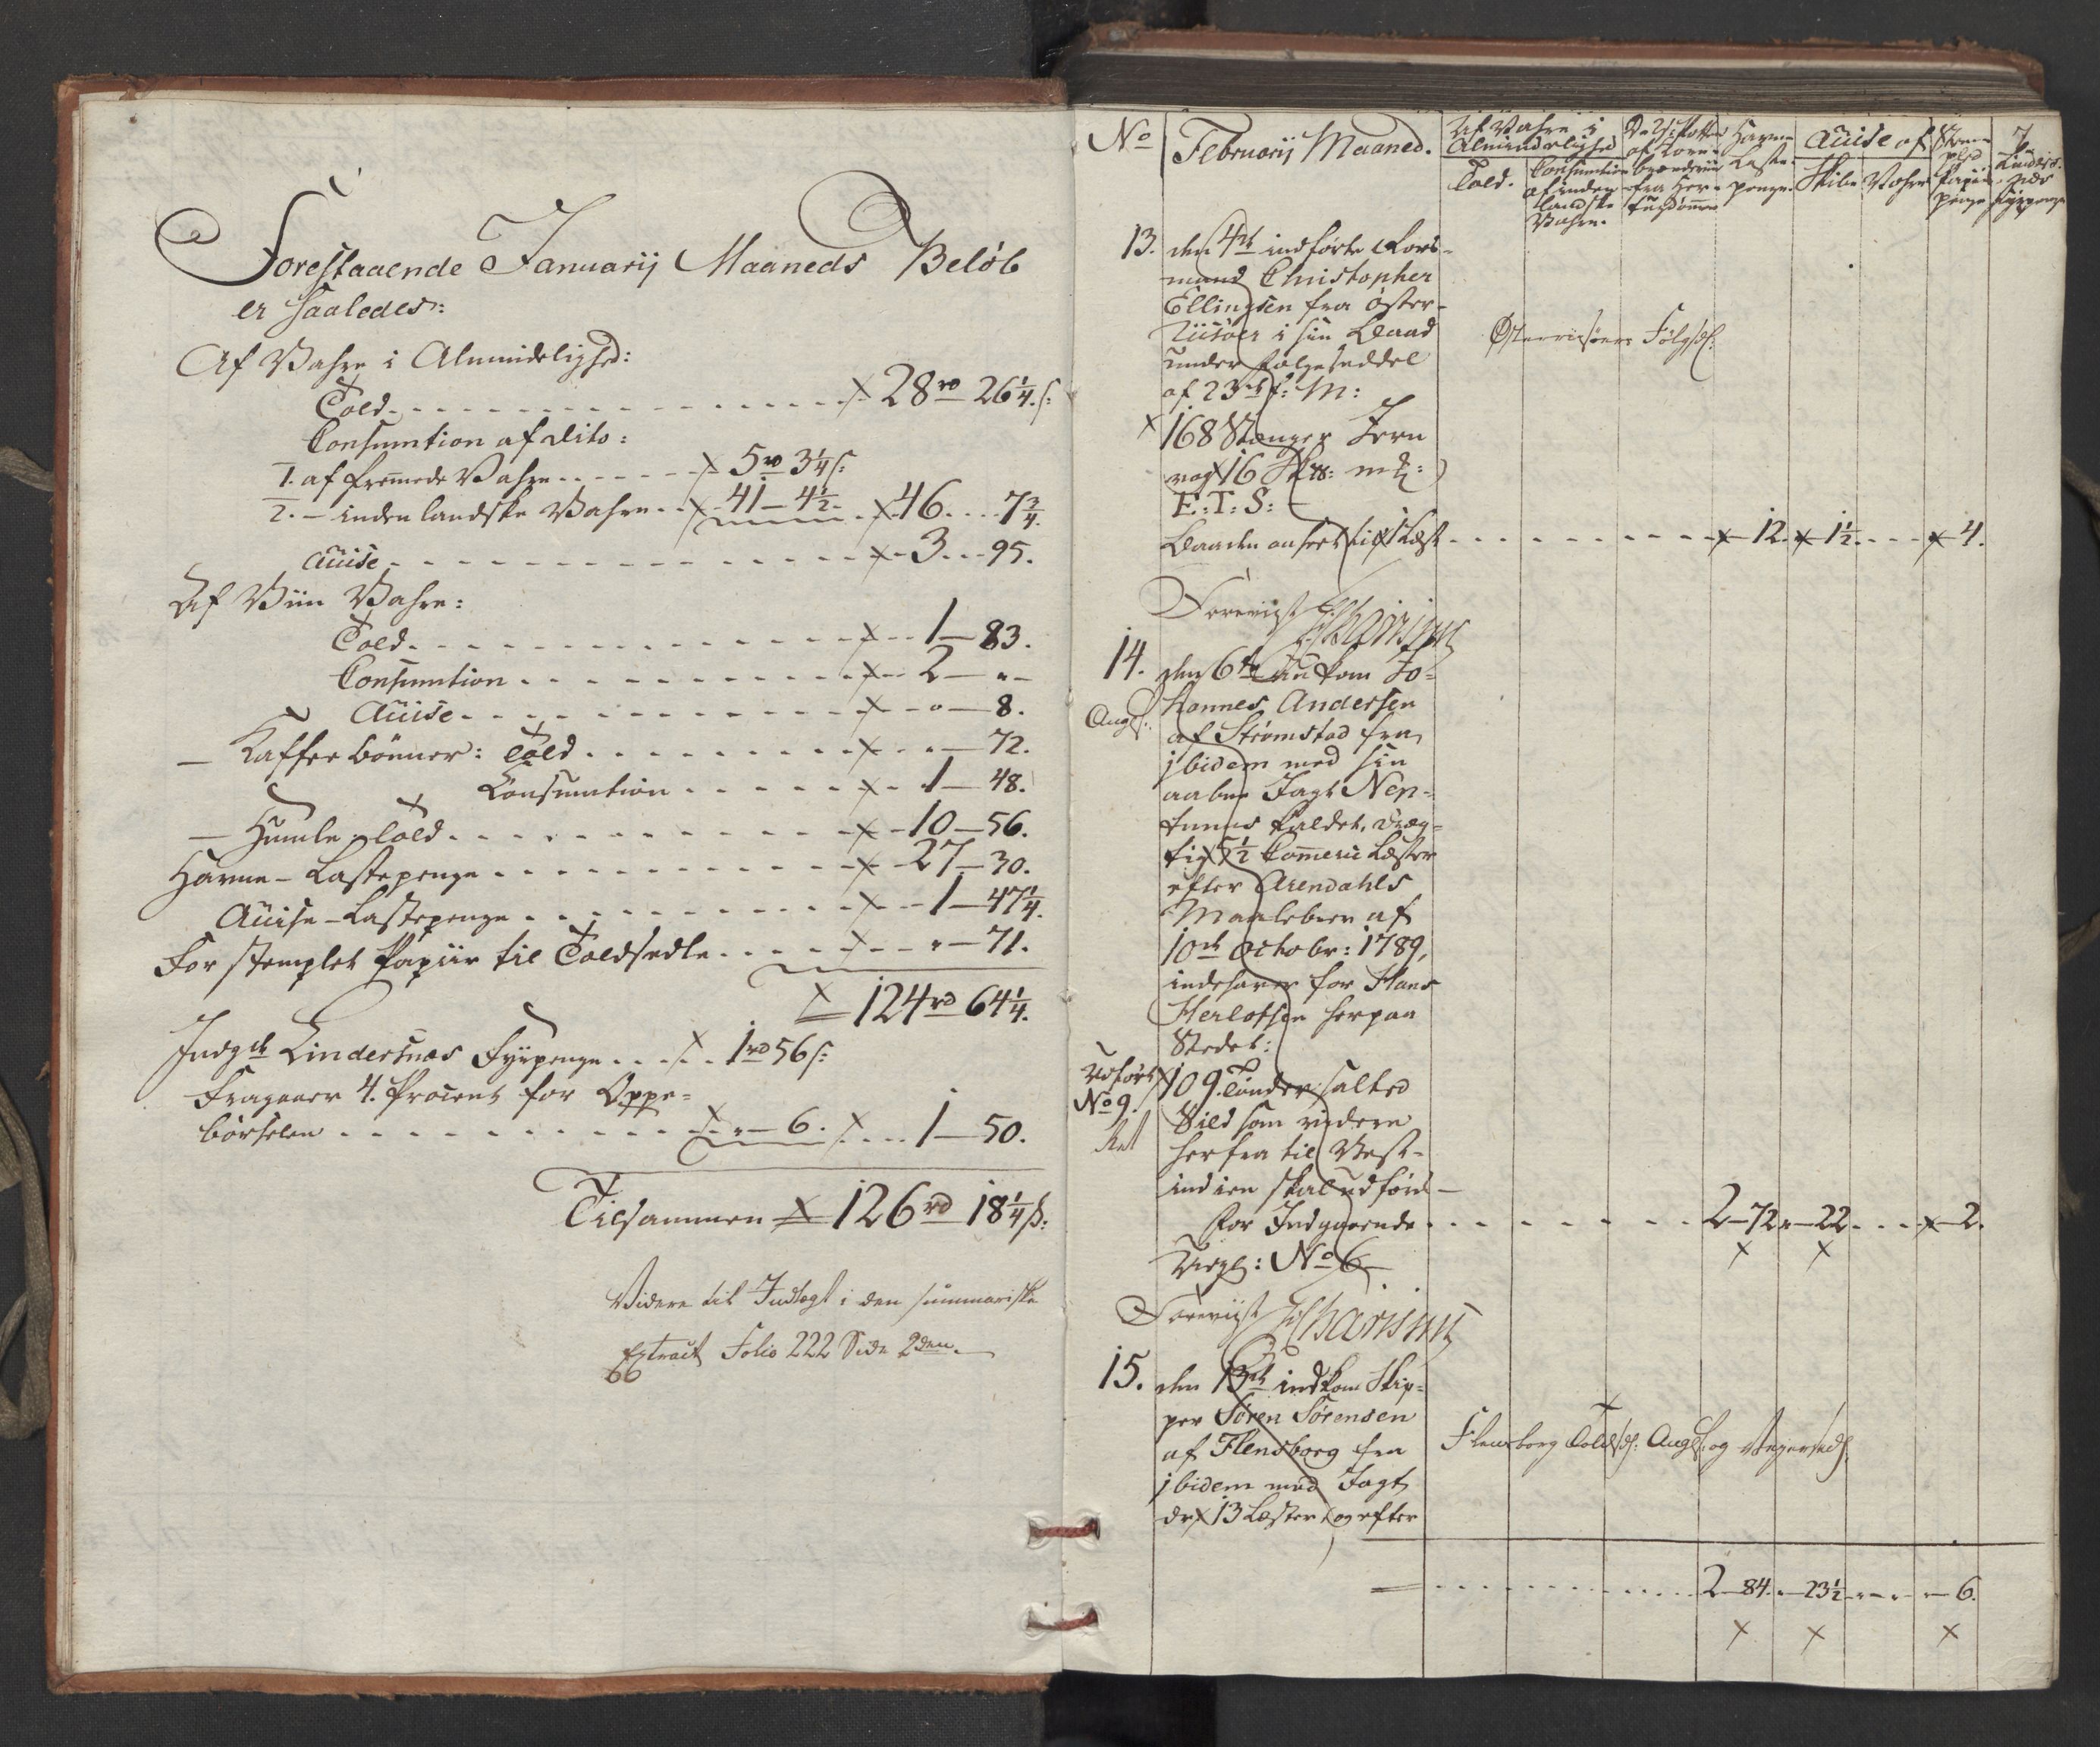 Forestaaende Januarij Maaneds Beløb
er saaledes:
Af Vahre i Almindelighed:
Told - - - 28 rd 26 1/4 s:
Consumtion af dito:
1. af fremmede Vahre - - - 5 rd 3 1/4 s:
2. - indenlandske Vahre - - 41 - 4 1/2 - 46 - - 7 3/4.
Acise - - - 3 - - 95.
Af Viin Vahre:
Told - - - 1 - 83.
Consumtion - - - 2 - " -
Acise - - - " - 8.
- Kaffee bønner: Told - - - " - 72.
Consumtion - - - 1 - 48.
- Humle Told - - - 10 - 56.
Havne-Lastepenge - - - 27 - 30.
Acise-Lastepenge - - - 1 - 47 1/4.
For stemplet Papiir til Toldsedle - - - " - 71.
124 rd 64 1/4.
Indg: Lindersnæs Fyrpenge - - - 1 rd 56 s:
Fragaaer 4. Procent for Oppe-
børselen - - - " - 6. - - 1 - 50.
Tilsammen 126 rd 18 1/4 s:
Videre til Indtægt i den summariske
Extract Folio 222 Side 2den.
No
Februarij Maaned.
Af Vahre i
Almindelighed
Told.
Consumtion
af inden
landske
Vahre.
Havne
Laste-
penge.
Acise af
Skibe
Vahre
Stem-
plet
Papiir
penge
Lindes-
næs
Fyrpenge
13. den 4de indførte Fors-
mand Christopher
Ellingsen fra Øster-
riisøer i sin Baad
under følgeseddel
af 23de f: M:
Østerriisøers Følgsdl:
168 Stænger Jern
vog 16
E: T: S:
Baaden anført til Læst - - - 12. 1 1/2. - - 4.
Foreviist
14. den 6te Ankom Jo-
hannes Andersen
Angs:
af Strømstad fra
ibidem med sin
aabne Jagt Nep-
tunus kaldet, dræg-
tig 5 1/2 Commerce Læster
efter Arendahls
Maalebrev af
10de Octobr: 1789,
indehaver for Hans
Herlofsen herpaa
Stedet:
Udført
No 9.
109. Tønder salted
Sild som videre
herfra til Vest-
indien skal udføres -
For Indgaaende - - - 2 - 72. " - 22. - - 2.
No 6
Foreviist
15. den 13de indkom Skip-
per Søren Sørensen
af Flensborg fra
ibidem med Jagt
dr. 13 Læster, og efter
Flensborg Toldsdl: Angs: og Vejersedl:
2 - 84. " - 23 1/2 - - - 6.